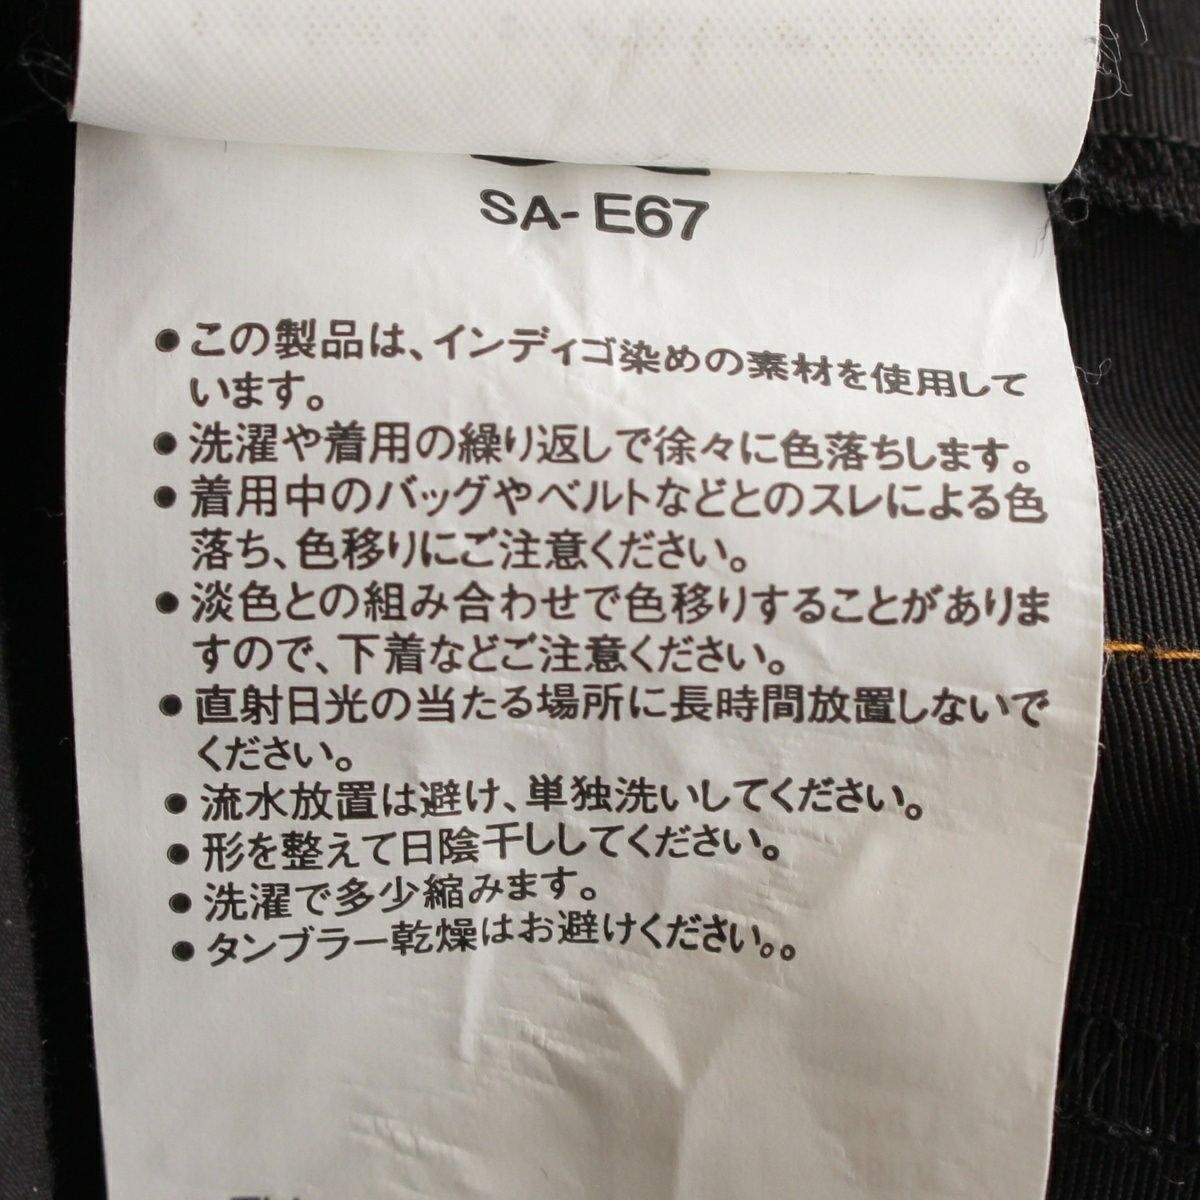 SA-E67
●この製品は、インディゴ染めの素材を使用して
います。
●洗濯や着用の繰り返しで徐々に色落ちします。
●着用中のバッグやベルトなどとのスレによる色
落ち、色移りにご注意ください。
●淡色との組み合わせで色移りすることがありま
すので、下着などご注意ください。
●直射日光の当たる場所に長時間放置しないで
ください。
●流水放置は避け、単独洗いしてください。
●形を整えて日陰干ししてください。
●洗濯で多少縮みます。
●タンブラー乾燥はお避けください。。